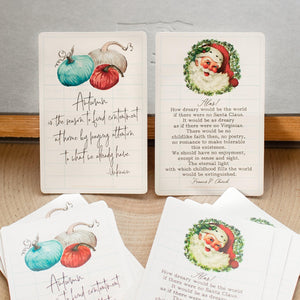 Autumn
is the season to find contentment
at home by paying attention
to what we already have.
Unknown
Alas!
How dreary would be the world
if there were no Santa Claus.
It would be as dreary
as if there were no Virginias.
There would be no
childlike faith then, no poetry,
no romance to make tolerable
this existence.
We should have no enjoyment,
except in sense and sight.
The eternal light
with which childhood fills the world
would be extinguished.
Francis P. Church
Autumn
is the season to find contentment
Alas!
How dreary would be the world
if there were no Santa Claus.
It would be as dreary
Alas!
How dreary would be the
if there were no Santa